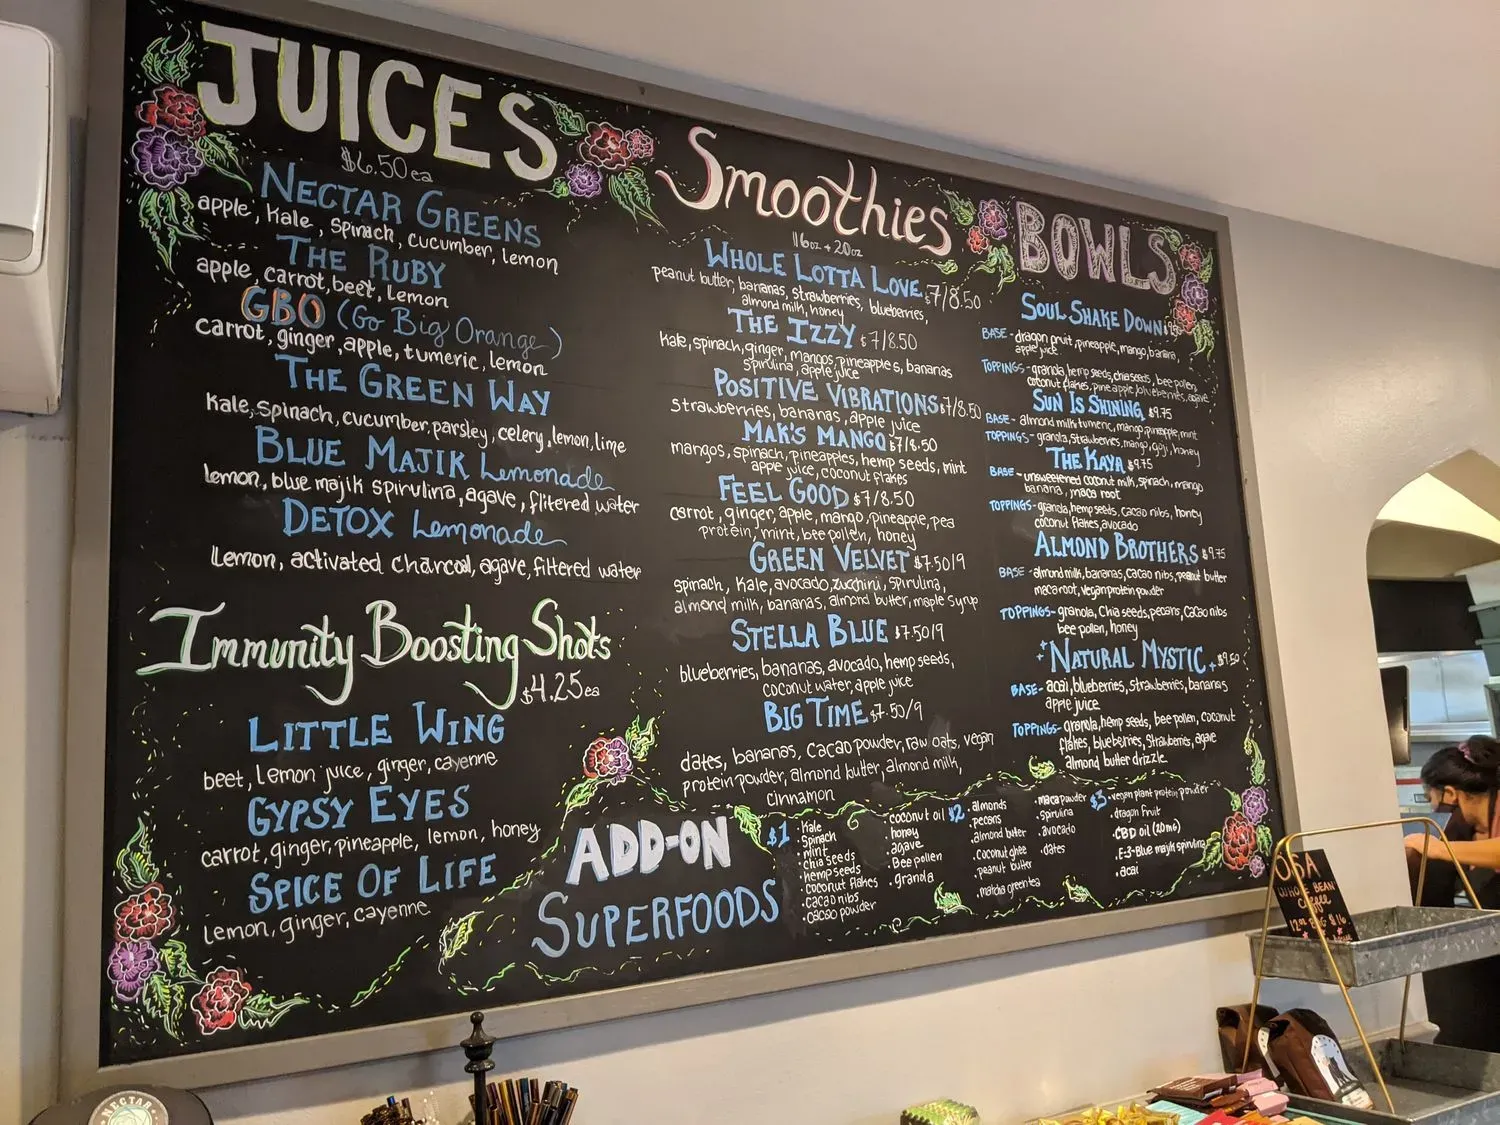 JUICES
$6.50 ea
NECTAR GREENS
apple, kale, spinach, cucumber, lemon
THE RUBY
apple, carrot, beet, lemon
GBO (Go Big Orange)
carrot, ginger, apple, tumeric, lemon
THE GREEN WAY
kale, spinach, cucumber, parsley, celery, lemon, lime
BLUE MAJIK Lemonade
lemon, blue majik spirulina, agave, filtered water
DETOX Lemonade
lemon, activated charcoal, agave, filtered water
Immunity Boosting Shots
$4.25 ea
LITTLE WING
beet, lemon juice, ginger, cayenne
GYPSY EYES
carrot, ginger, pineapple, lemon, honey
SPICE OF LIFE
lemon, ginger, cayenne
Smoothies
16oz + 20oz
WHOLE LOTTA LOVE $7/8.50
peanut butter, bananas, strawberries, blueberries,
almond milk, honey
THE IZZY $7/8.50
kale, spinach, ginger, mangos, pineapples, bananas
spirulina, apple juice
POSITIVE VIBRATIONS $7/8.50
strawberries, bananas, apple juice
MAK'S MANGO $7/8.50
mangos, spinach, pineapples, hemp seeds, mint
apple juice, coconut flakes
FEEL GOOD $7/8.50
carrot, ginger, apple, mango, pineapple, pea
protein, mint, bee pollen, honey
GREEN VELVET $7.50/9
spinach, kale, avocado, zucchini, spirulina,
almond milk, bananas, almond butter, maple syrup
STELLA BLUE $7.50/9
blueberries, bananas, avocado, hemp seeds,
coconut water, apple juice
BIG TIME $7.50/9
dates, bananas, cacao powder, raw oats, vegan
protein powder, almond butter, almond milk,
cinnamon
BOWLS
SOUL SHAKE DOWN
BASE - dragon fruit, pineapple, mango, banana,
apple juice
TOPPINGS - granola, hemp seeds, chia seeds, bee pollen,
coconut flakes, pineapple, blueberries, agave
SUN IS SHINING $9.75
BASE - almond milk, tumeric, mango, pineapple, mint
TOPPINGS - granola, strawberries, mango, goji, honey
THE KAYA $9.75
BASE - unsweetened coconut milk, spinach, mango
banana, maca root
TOPPINGS - granola, hemp seeds, cacao nibs, honey
coconut flakes, avocado
ALMOND BROTHERS $9.75
BASE - almond milk, bananas, cacao nibs, peanut butter
maca root, vegan protein powder
TOPPINGS - granola, chia seeds, pecans, cacao nibs
bee pollen, honey
NATURAL MYSTIC $9.50
BASE - acai, blueberries, strawberries, bananas
apple juice
TOPPINGS - granola, hemp seeds, bee pollen, coconut
flakes, blueberries, strawberries, agave
almond butter drizzle
ADD-ON
SUPERFOODS
$1
• kale
• spinach
• mint
• chia seeds
• hemp seeds
• coconut flakes
• cacao nibs
• cacao powder
• coconut oil
• honey
• agave
• Bee pollen
• granola
$2
• almonds
• pecons
• almond butter
• coconut ghee
• peanut butter
• matcha green tea
• maca powder
• spirulina
• avocado
• dates
$3
• vegan plant protein powder
• dragon fruit
• CBD oil (20mg)
• E-3-Blue majik spirulina
• acai
WHOLE BEAN
NECTAR